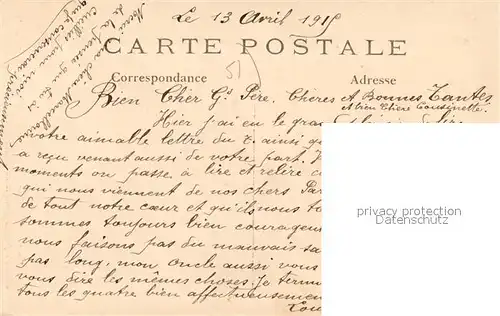 Le 13 Avril 1915
CARTE POSTALE
Correspondance
Adresse
51
Bien Cher Gd Père, Chères et Bonnes Tantes
et bien Chère Cousinette.
Hier j'ai eu le grand
votre aimable lettre du 7. ainsi
a reçu venant aussi de votre part.
moments on passe à lire et relire
qui nous viennent de nos chers
de tout notre cœur et qu'ils nous
sommes toujours bien courageu
nous faisons pas du mauvais sa
pas long, mon Oncle aussi vous
vous dire les mêmes choses. Je term
tous les quatre bien affectueusemen
Lou
Merci
de la pensée que tu as
cueillie pour moi
que je conserverai précieusement
privacy protection
Datenschutz